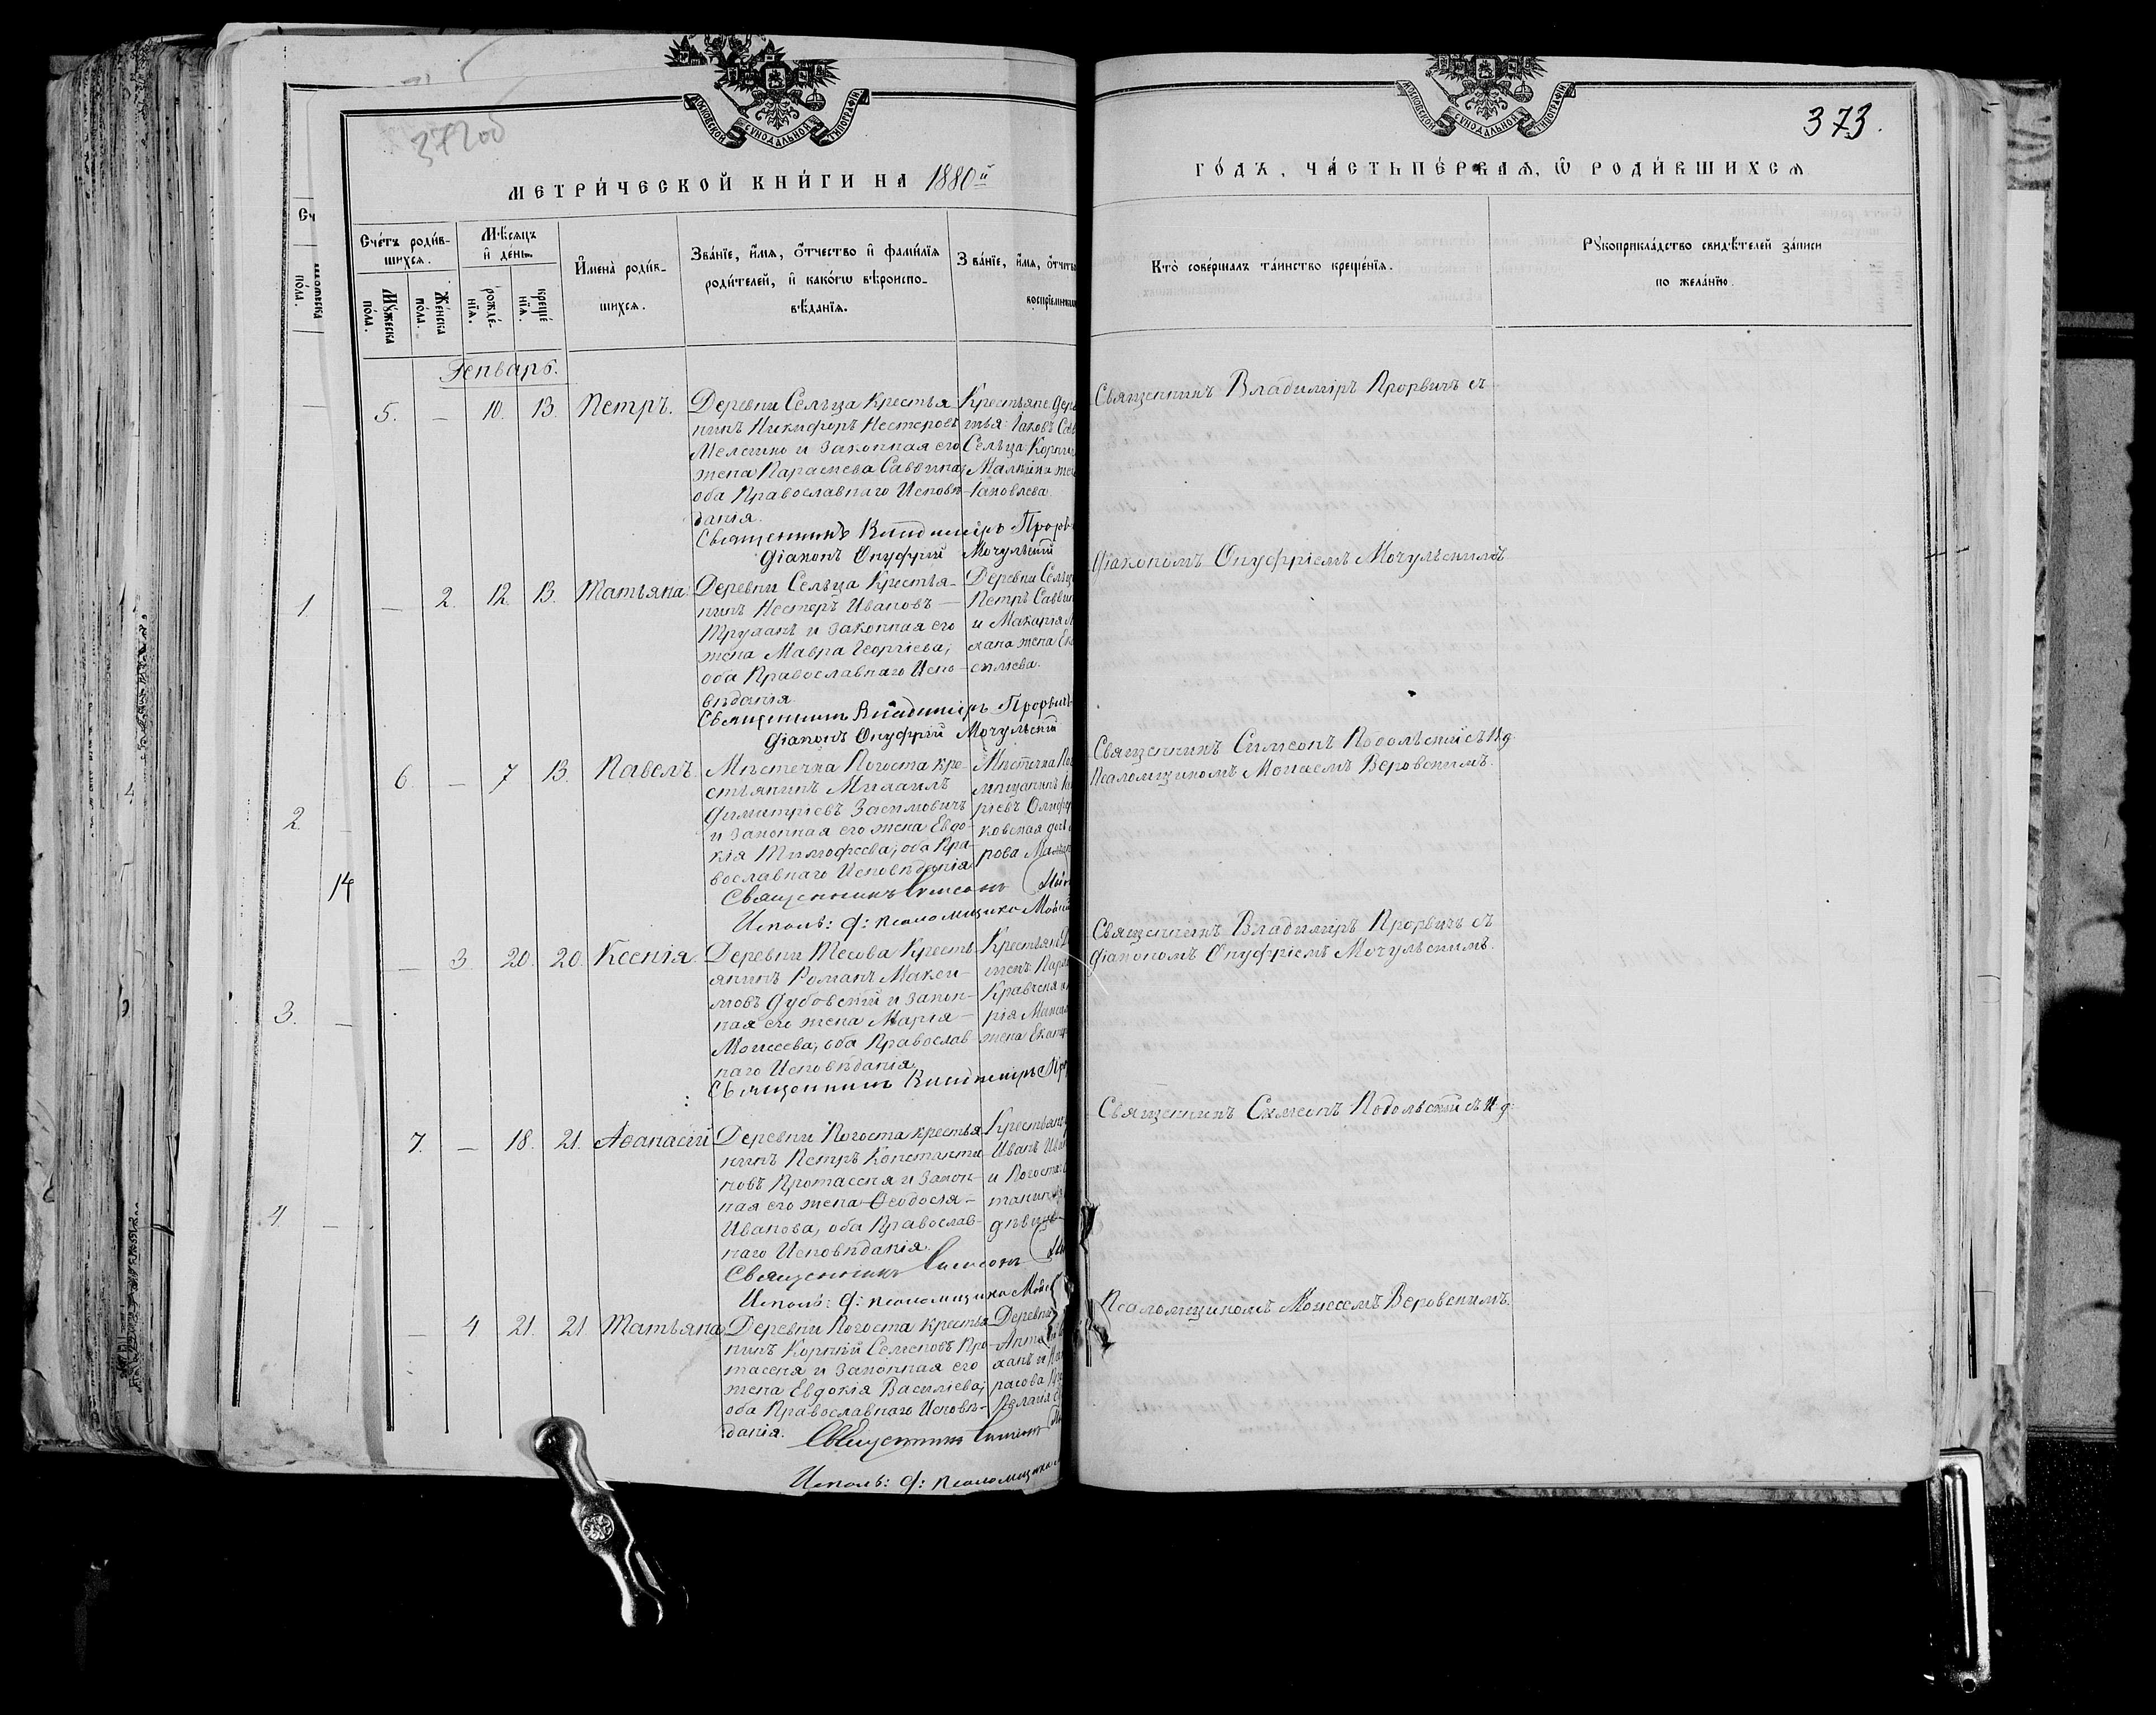 МОСКОВСКОЙ СѴНОДАЛЬНОЙ ТИПОГРАФІИ
372об
МЕТРИ́ЧЕСКОЙ КНИ́ГИ НА 1880й
Сче́тъ роди́в-
шихся.
Мѣ́сяцъ
и҆ де́нь.
И҆мена̀ роди́в-
шихся.
Зва́нїе, и҆́мя, ѻ҆́тчество и҆ фами́лїя
роди́телей, и҆ како́гѡ вѣроиспо-
вѣ́данїя.
Зва́нїе, и҆́мя, ѻ҆́тчество
воспрїемников
Мꙋ́жеска
по́ла.
Же́нска
по́ла.
рожде́-
нїя.
креще́
нїя.
Генварь.
5. — 10. 13. Петръ.
Деревни Сельца Крестья-
нинъ Никифоръ Нестеровъ
и Законная его
жена Параскева Саввина,
оба Православнаго Исповѣ-
данія.
Крестьяне Дере
Іаковъ Сав
Сельца Корни
жен
Іаковлева.
Священникъ Владиміръ Прорв
Діаконъ Онуфрій Мочульскій
— 2. 12. 13. Татьяна.
Деревни Сельца Крестья-
нинъ Нестеръ Ивановъ —
Труханъ и Законная его
жена Мавра Георгіева,
оба Православнаго Испо-
вѣданія.
Деревни Сельц
Петръ Савви
и Макарія
жена
Священникъ Владиміръ Прорвичъ
Діаконъ Онуфрій Мочульскій
6. — 7 13. Павелъ.
Мѣстечка Погоста кре-
стьянинъ Михаилъ
Димитріевъ Засимовичъ
и Законная его жена Евдо-
кія Тимофеева, оба Пра-
вославнаго Исповѣданія
Мѣстечка По
мѣщанинъ
ріевъ
ковская
рова
Священникъ Симеонъ
Исполъ: д: псаломщика Мойс
— 3. 20. 20. Ксенія.
Деревни Тесова Кресть-
янинъ Романъ Макси-
мовъ Дубовскій и закон-
ная его жена Марія —
Моисеева, оба Православ-
наго Исповѣданія.
Крестьяне Д
Кравченя
рія
жена Екате
Священникъ Владиміръ Про
7. — 18. 21. Аѳанасій
Деревни Погоста крестья-
нинъ Петръ Константи-
новъ Протасеня и закон-
ная его жена Ѳеодосія —
Иванова, оба Православ-
наго Исповѣданія.
Крестьянин
Иванъ Иван
и Погоста
дѣвица
Священникъ Симеонъ
Исполъ: д: псаломщика Мойс
— 4 21. 21 Татьяна.
Деревни Погоста крестья-
нинъ Корнилій Семеновъ Про-
тасеня и Законная его
жена Евдокія Василіева,
оба Православнаго Исповѣ-
данія.
Деревни
Священникъ Симеонъ
Исполъ: д: псаломщика
1
2.
14
3.
4.
МОСКОВСКОЙ СѴНОДАЛЬНОЙ ТИПОГРАФІИ
373.
ГО́ДЪ, ЧА́СТЬ ПЕ́РВАЯ, Ѿ РОДИ́ВШИХСЯ
Кто̀ соверша́лъ та́инство креще́нїя.
Рꙋкоприкла́дство свидѣ́телей за́писи
по жела́нїю.
Священникъ Владиміръ Прорвичъ съ
Діакономъ Онуфріемъ Мочульскимъ
Священникъ Симеонъ Подольскій съ И.д.
Псаломщикомъ Моисеемъ Веровскимъ.
Священникъ Владиміръ Прорвичъ съ
Діакономъ Онуфріемъ Мочульскимъ.
Священникъ Симеонъ Подольскій съ И.д.
Псаломщикомъ Моисеемъ Веровскимъ.